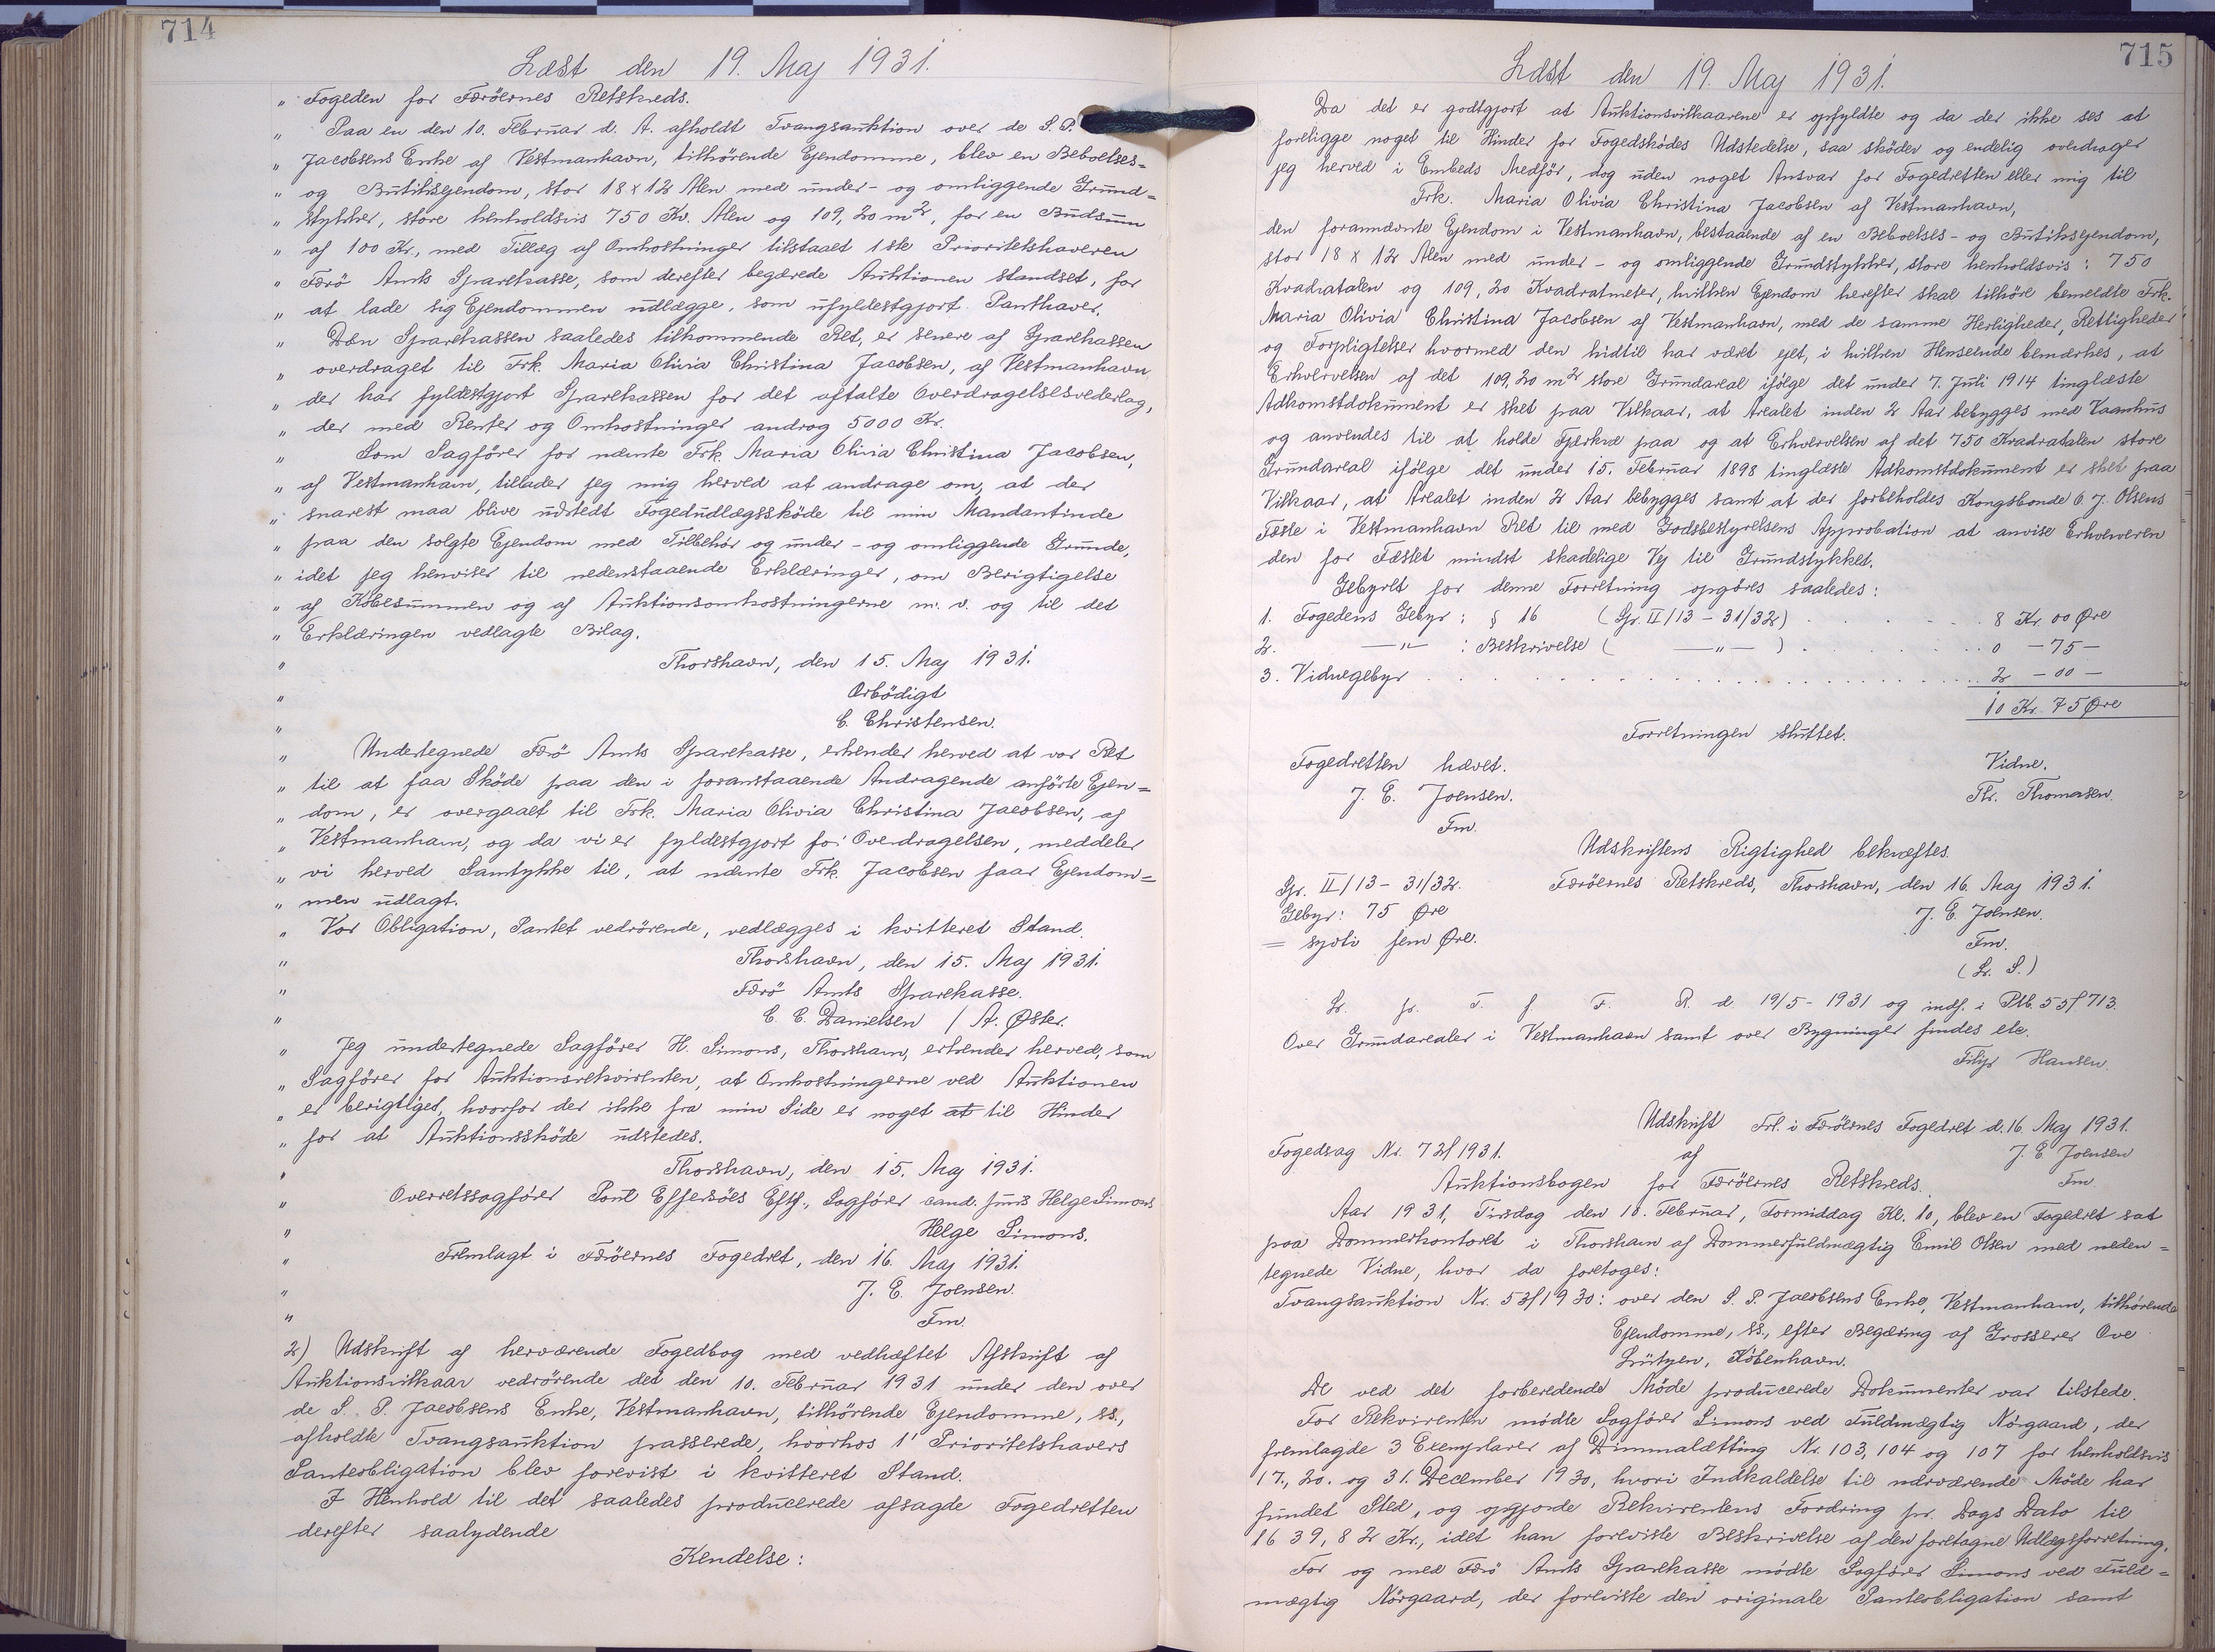 714
Læst den 19. Maj 1931.
" Fogeden for Færöernes Retskreds.
" Paa en den 10. Februar d. A. afholdt Tvangsauktion over de S. P.
" Jacobsens Enke af Vestmanhavn, tilhörende Ejendomme, blev en Beboelses=
" og Butiksejendom, stor 18 x 12 Alen med under- og omliggende Grund=
" stykker, store henholdsvis 750 Kv. Alen og 109,20 m², for en Budsum
" af 100 Kr., med Tillæg af Omkostninger tilstaaet 1ste Prioritetshaveren
" Færö Amts Sparekasse, som derefter begærede Auktionen standset, for
" at lade sig Ejendommen udlægge, som ufyldestgjort Panthaver.
" Den Sparekassen saaledes tilkommende Ret, er senere af Sparekassen
" overdraget til Frk. Maria Olivia Christina Jacobsen, af Vestmanhavn
" der har fyldestgjort Sparekassen for det aftalte Overdragelsesvederlag,
" der med Renter og Omkostninger androg 5000 Kr.
" Som Sagförer for nævnte Frk. Maria Olivia Christina Jacobsen,
" af Vestmanhavn, tillader jeg mig herved at andrage om, at der
" snarest maa blive udstedt Fogedudlægsskøde til min Mandantinde
" paa den solgte Ejendom med Tilbehör og under- og omliggende Grunde,
" idet jeg henviser til nedenstaaende Erklæringer, om Berigtigelse
" af Købesummen og af Auktionsomkostningerne m. v. og til det
" Erklæringen vedlagte Bilag.
" Thorshavn, den 15. Maj 1931.
" Ærbödigt
" C. Christensen.
" Undertegnede Færö Amts Sparekasse, erkender herved at vor Ret
" til at faa Sköde paa den i foranstaaende Andragende anförte Ejen=
" dom, er overgaaet til Frk. Maria Olivia Christina Jacobsen, af
" Vestmanhavn, og da vi er fyldestgjort for Overdragelsen, meddeler
" vi herved Samtykke til, at nævnte Frk. Jacobsen faar Ejendom=
" men udlagt.
" Vor Obligation, Pantet vedrörende, vedlægges i kvitteret Stand.
" Thorshavn, den 15. Maj 1931.
" Færö Amts Sparekasse.
" C. C. Danielsen / A. Øster.
" Jeg undertegnede Sagförer H. Simons, Thorshavn, erkender herved, som
" Sagförer for Auktionsrekvirenten, at Omkostningerne ved Auktionen
" er berigtiget, hvorfor der ikke fra min Side er noget at til Hinder
" for at Auktionsskøde udstedes.
" Thorshavn, den 15. Maj 1931.
" Overretssagförer Poul Effersöes Eftf., Sagförer cand. juris Helge Simons
" Helge Simons.
" Fremlagt i Færöernes Fogedret, den 16. Maj 1931.
" J. E. Joensen.
" Fm.
2) Udskrift af herværende Fogedbog med vedhæftet Afskrift af
Auktionsvilkaar vedrörende det den 10. Februar 1931 under den over
de S. P. Jacobsens Enke, Vestmanhavn, tilhörende Ejendomme, ss.,
afholdte Tvangsauktion passerede, hvorhos 1' Prioritetshavers
Panteobligation blev forevist i kvitteret Stand.
I Henhold til det saaledes producerede afsagde Fogedretten
derefter saalydende
Kendelse:
715
Læst den 19. Maj 1931.
Da det er godtgjort at Auktionsvilkaarene er opfyldte og da der ikke ses at
foreligge noget til Hinder for Fogedskødes Udstedelse, saa sköder og endelig overdrager
jeg herved i Embeds Medför, dog uden noget Ansvar for Fogedretten eller mig til
Frk. Maria Olivia Christina Jacobsen af Vestmanhavn,
den forannævnte Ejendom i Vestmanhavn, bestaaende af en Beboelses- og Butiksejendom,
stor 18 x 12 Alen med under- og omliggende Grundstykker, store henholdsvis: 750
Kvadratalen og 109,20 Kvadratmeter, hvilken Ejendom herefter skal tilhöre bemeldte Frk.
Maria Olivia Christina Jacobsen af Vestmanhavn, med de samme Herligheder, Rettigheder
og Forpligtelser hvormed den hidtil har været ejet, i hvilken Henseende bemærkes, at
Erhvervelsen af det 109,20 m² store Grundareal ifölge det under 7. Juli 1914 tinglæste
Adkomstdokument er sket paa Vilkaar, at Arealet inden 2 Aar bebygges med Vaanhus
og anvendes til at holde Fjerkræ paa og at Erhvervelsen af det 750 Kvadratalen store
Grundareal ifölge det under 15. Februar 1898 tinglæste Adkomstdokument er sket paa
Vilkaar, at Arealet inden 2 Aar bebygges samt at der forbeholdes Kongsbonde O. J. Olsens
Fæste i Vestmanhavn Ret til med Godsbestyrelsens Approbation at anvise Erhververen
den for Fæstet mindst skadelige Vej til Grundstykket.
Gebyret for denne Forretning opgøres saaledes:
1. Fogedens Gebyr: § 16 (Gr. II/13 - 31/32) . . . . . 8 Kr. 00 Øre
2. —"— : Beskrivelse ( —"— ) . . . . . 0 - 75 -
3. Vidnegebyr . . . . . 2 - 00 -
10 Kr. 75 Øre
Forretningen sluttet.
Fogedretten hævet.
Vidne.
J. E. Joensen.
Th. Thomasen.
Fm.
Udskriftens Rigtighed bekræftes.
Gr. II/13 - 31/32.
Færöernes Retskreds, Thorshavn, den 16. Maj 1931.
Gebyr: 75 Øre
J. E. Joensen.
= syvti fem Øre.
Fm.
(L. S.)
L. fr. T. f. F. R. d. 19/5-1931 og indf. i Ptb. 55 f 713.
Over Grundarealer i Vestmanhavn samt over Bygninger findes etc.
Filip Hansen.
Udskrift
Frl. i Færöernes Fogedret d. 16. Maj 1931.
Fogedsag Nr. 72/1931.
af
J. E. Joensen
Auktionsbogen for Færöernes Retskreds.
Fm.
Aar 1931, Tirsdag den 10. Februar, Formiddag Kl. 10, blev en Fogedret sat
paa Dommerkontoret i Thorshavn af Dommerfuldmægtig Emil Olsen med neden=
tegnede Vidne, hvor da foretoges:
Tvangsauktion Nr. 53/1930: over den S. P. Jacobsens Enke, Vestmanhavn, tilhörende
Ejendomme, ss., efter Begæring af Grosserer Ove
Lützen, København.
De ved det forberedende Möde producerede Dokumenter var tilstede.
For Rekvirenten mødte Sagförer Simons ved Fuldmægtig Nörgaard, der
fremlagde 3 Exemplarer af Dimmalætting Nr. 103, 104 og 107 for henholdsvis
17., 20. og 31. December 1930, hvori Indkaldelse til nærværende Möde har
fundet Sted, og opgjorde Rekvirentens Fordring pr. Dags Dato til
1639,82 Kr., idet han foreviste Beskrivelse af den foretagne Udlægsforretning.
For og med Færö Amts Sparekasse mødte Sagförer Simons ved Fuld=
mægtig Nörgaard, der foreviste den originale Panteobligation samt